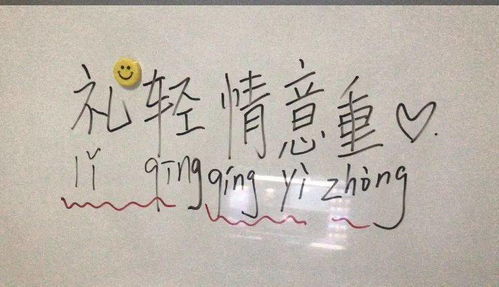 礼轻情意重♡.
lǐ qīng qíng yì zhòng